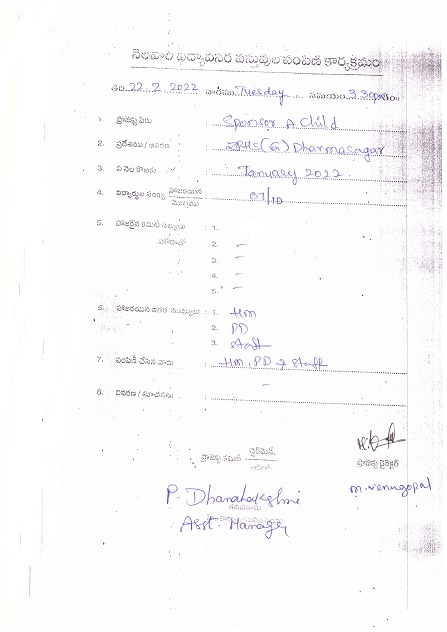 నెలవారీ విద్యావసర వస్తువుల పంపిణి కార్యక్రమం
తేది 22.2.2022 వారము Tuesday సమయం 3.30pm
1. ప్రాజెక్టు పేరు : Sponsor A Child
2. ప్రదేశము / ఆవరణ : ZPHS(G) Dharmasagar
3. ఏ నెల కొఱకు : January 2022
4. విద్యార్థుల సంఖ్య హాజరయిన / మొత్తము : 07/10
5. హాజరైన కమిటీ సభ్యులు : 1.
2. –
3. –
4. –
5. –
6. హాజరయిన ఇతర ముఖ్యులు : 1. HM
2. PD
3. Staff
7. పంపిణీ చేసిన వారు : HM, PD & Staff
8. వివరణ / సూచనలు : –
ప్రాజెక్టు కమిటీ చైర్మెన్
ప్రాజెక్టు డైరెక్టర్
M. Venugopal
P. Dhanalakshmi
Asst. Manager